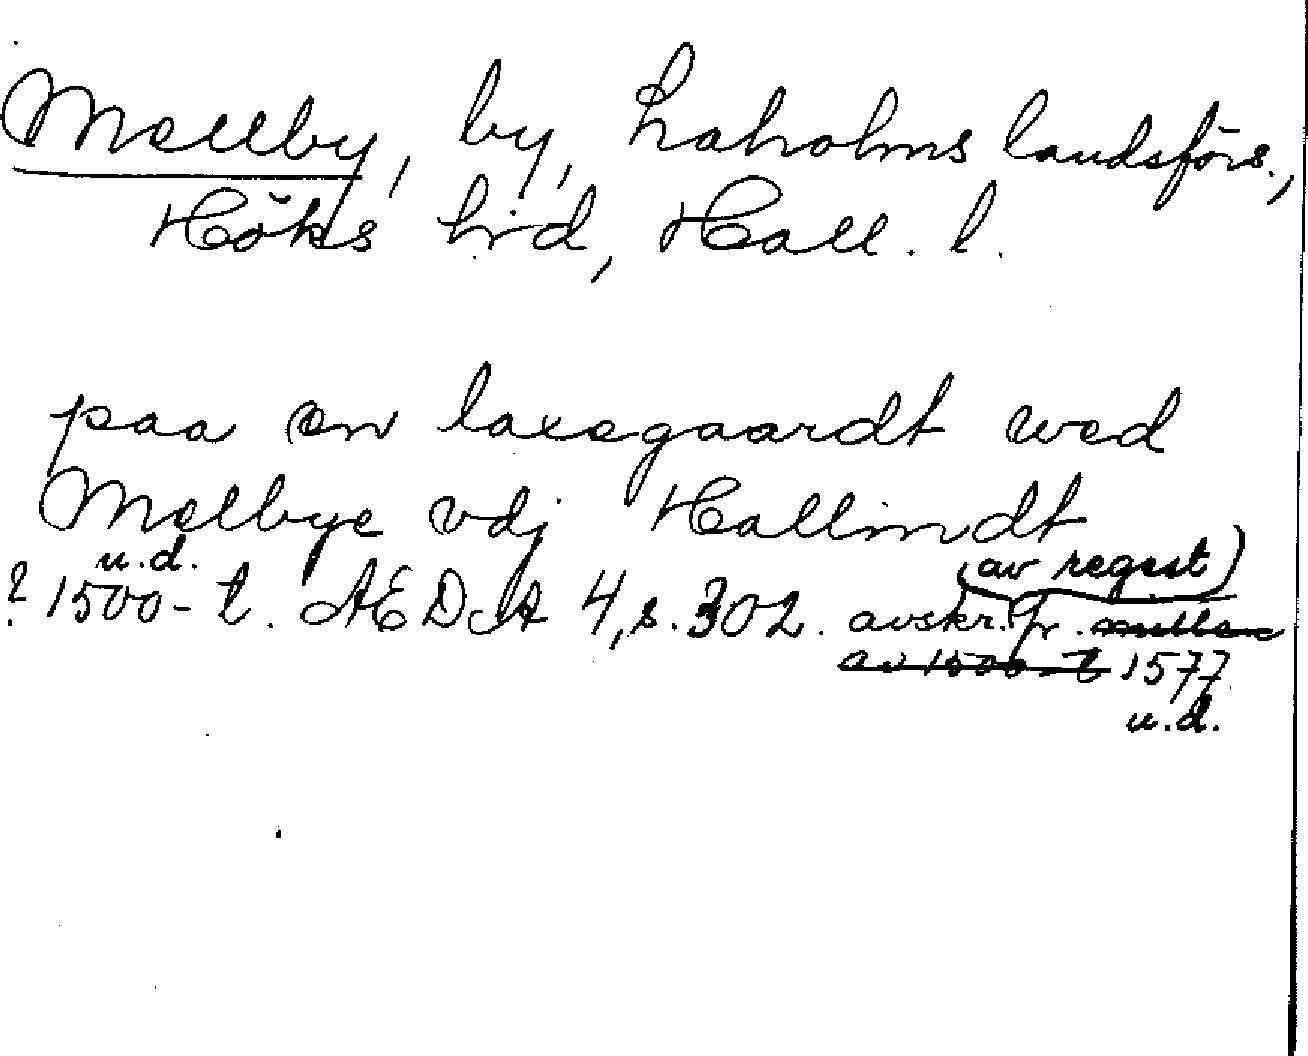 Mellby, by, Laholms landsförs.,
Höks hrd, Hall. l.
paa en laxegaardt wed
Melbye vdj Hallindt
u.d. (av regist)
? 1500-t. AEDA 4, s. 302. avskr. fr. mitten
av 1500-t 1577
u.d.